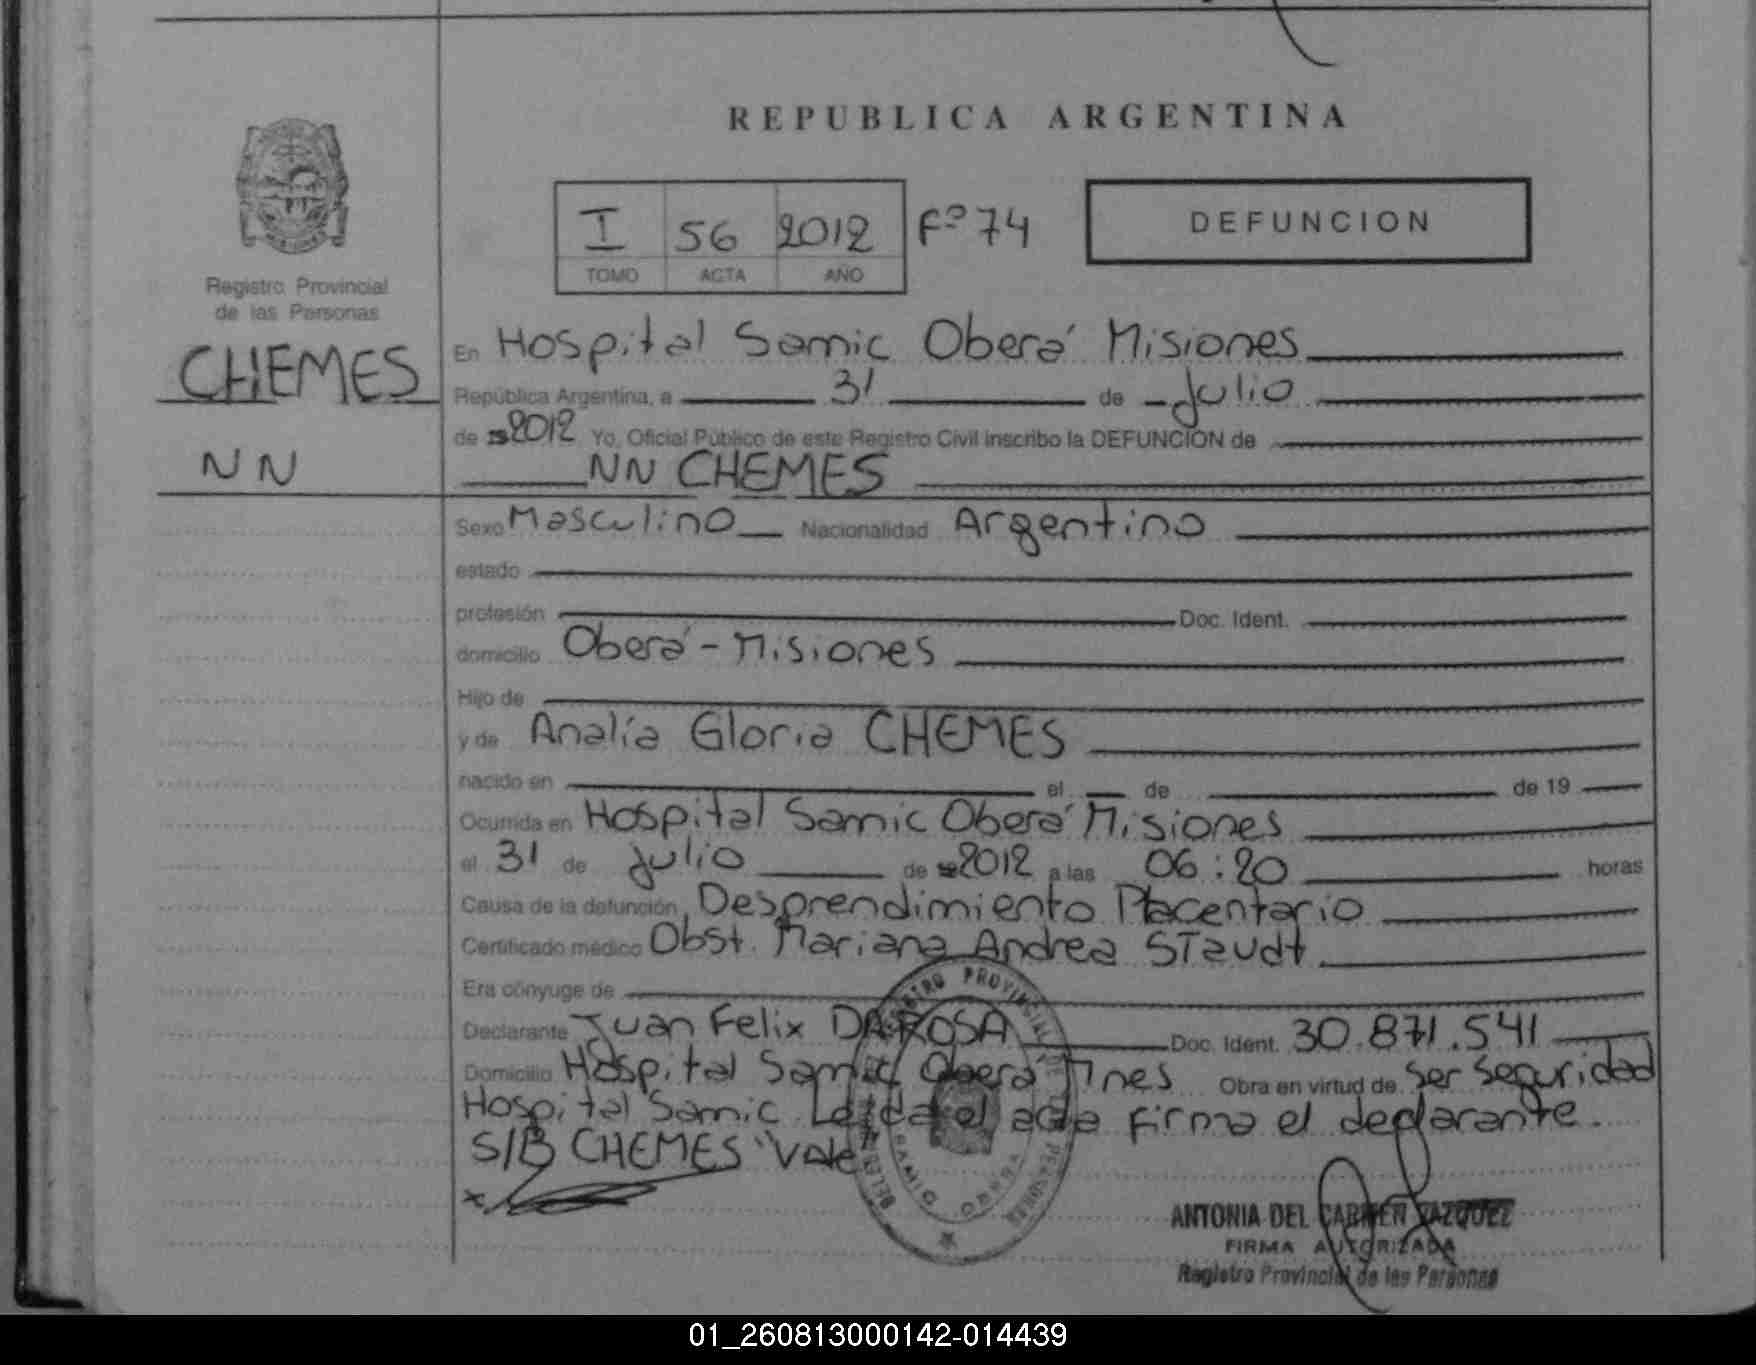 REPUBLICA ARGENTINA
I 56 2012 Fº 74
TOMO ACTA AÑO
DEFUNCION
Registro Provincial
de las Personas
CHEMES
N N
En Hospital Samic Oberá Misiones
República Argentina, a 31 de Julio
de 2012 Yo, Oficial Público de este Registro Civil inscribo la DEFUNCION de
NN CHEMES
Sexo Masculino Nacionalidad Argentino
estado
profesión Doc. Ident.
domicilio Oberá - Misiones
Hijo de
y de Analía Gloria CHEMES
nacido en el de de 19
Ocurrida en Hospital Samic Oberá Misiones
el 31 de Julio de 2012 a las 06:20 horas
Causa de la defunción Desprendimiento Placentario
Certificado médico Obst. Mariana Andrea STaudt
Era cónyuge de
Declarante Juan Felix DA ROSA Doc. Ident. 30.871.541
Domicilio Hospital Samic Oberá Mnes Obra en virtud de Ser Seguridad
Hospital Samic Leida el acta firma el declarante.
S/B CHEMES "Vale
x
ANTONIA DEL CARMEN VAZQUEZ
FIRMA AUTORIZADA
Registro Provincial de las Personas
01_260813000142-014439